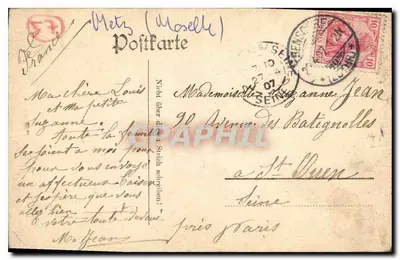 Metz (Moselle)
Postkarte
France
Ma chère Louis
et ma petite
Suzanne.
toute la famille
se joint a moi pour
pour vous envoyer
un affectueux baiser
et j'espère que vous
allez bien
votre tout dévoué
M. Jean
Nicht über diesen Strich schreiben!
Mademoiselle Suzanne Jean
90 Avenue des Batignolles
a St Ouen
Seine
près Paris
SEINE
07
10
10
DELCAMPE